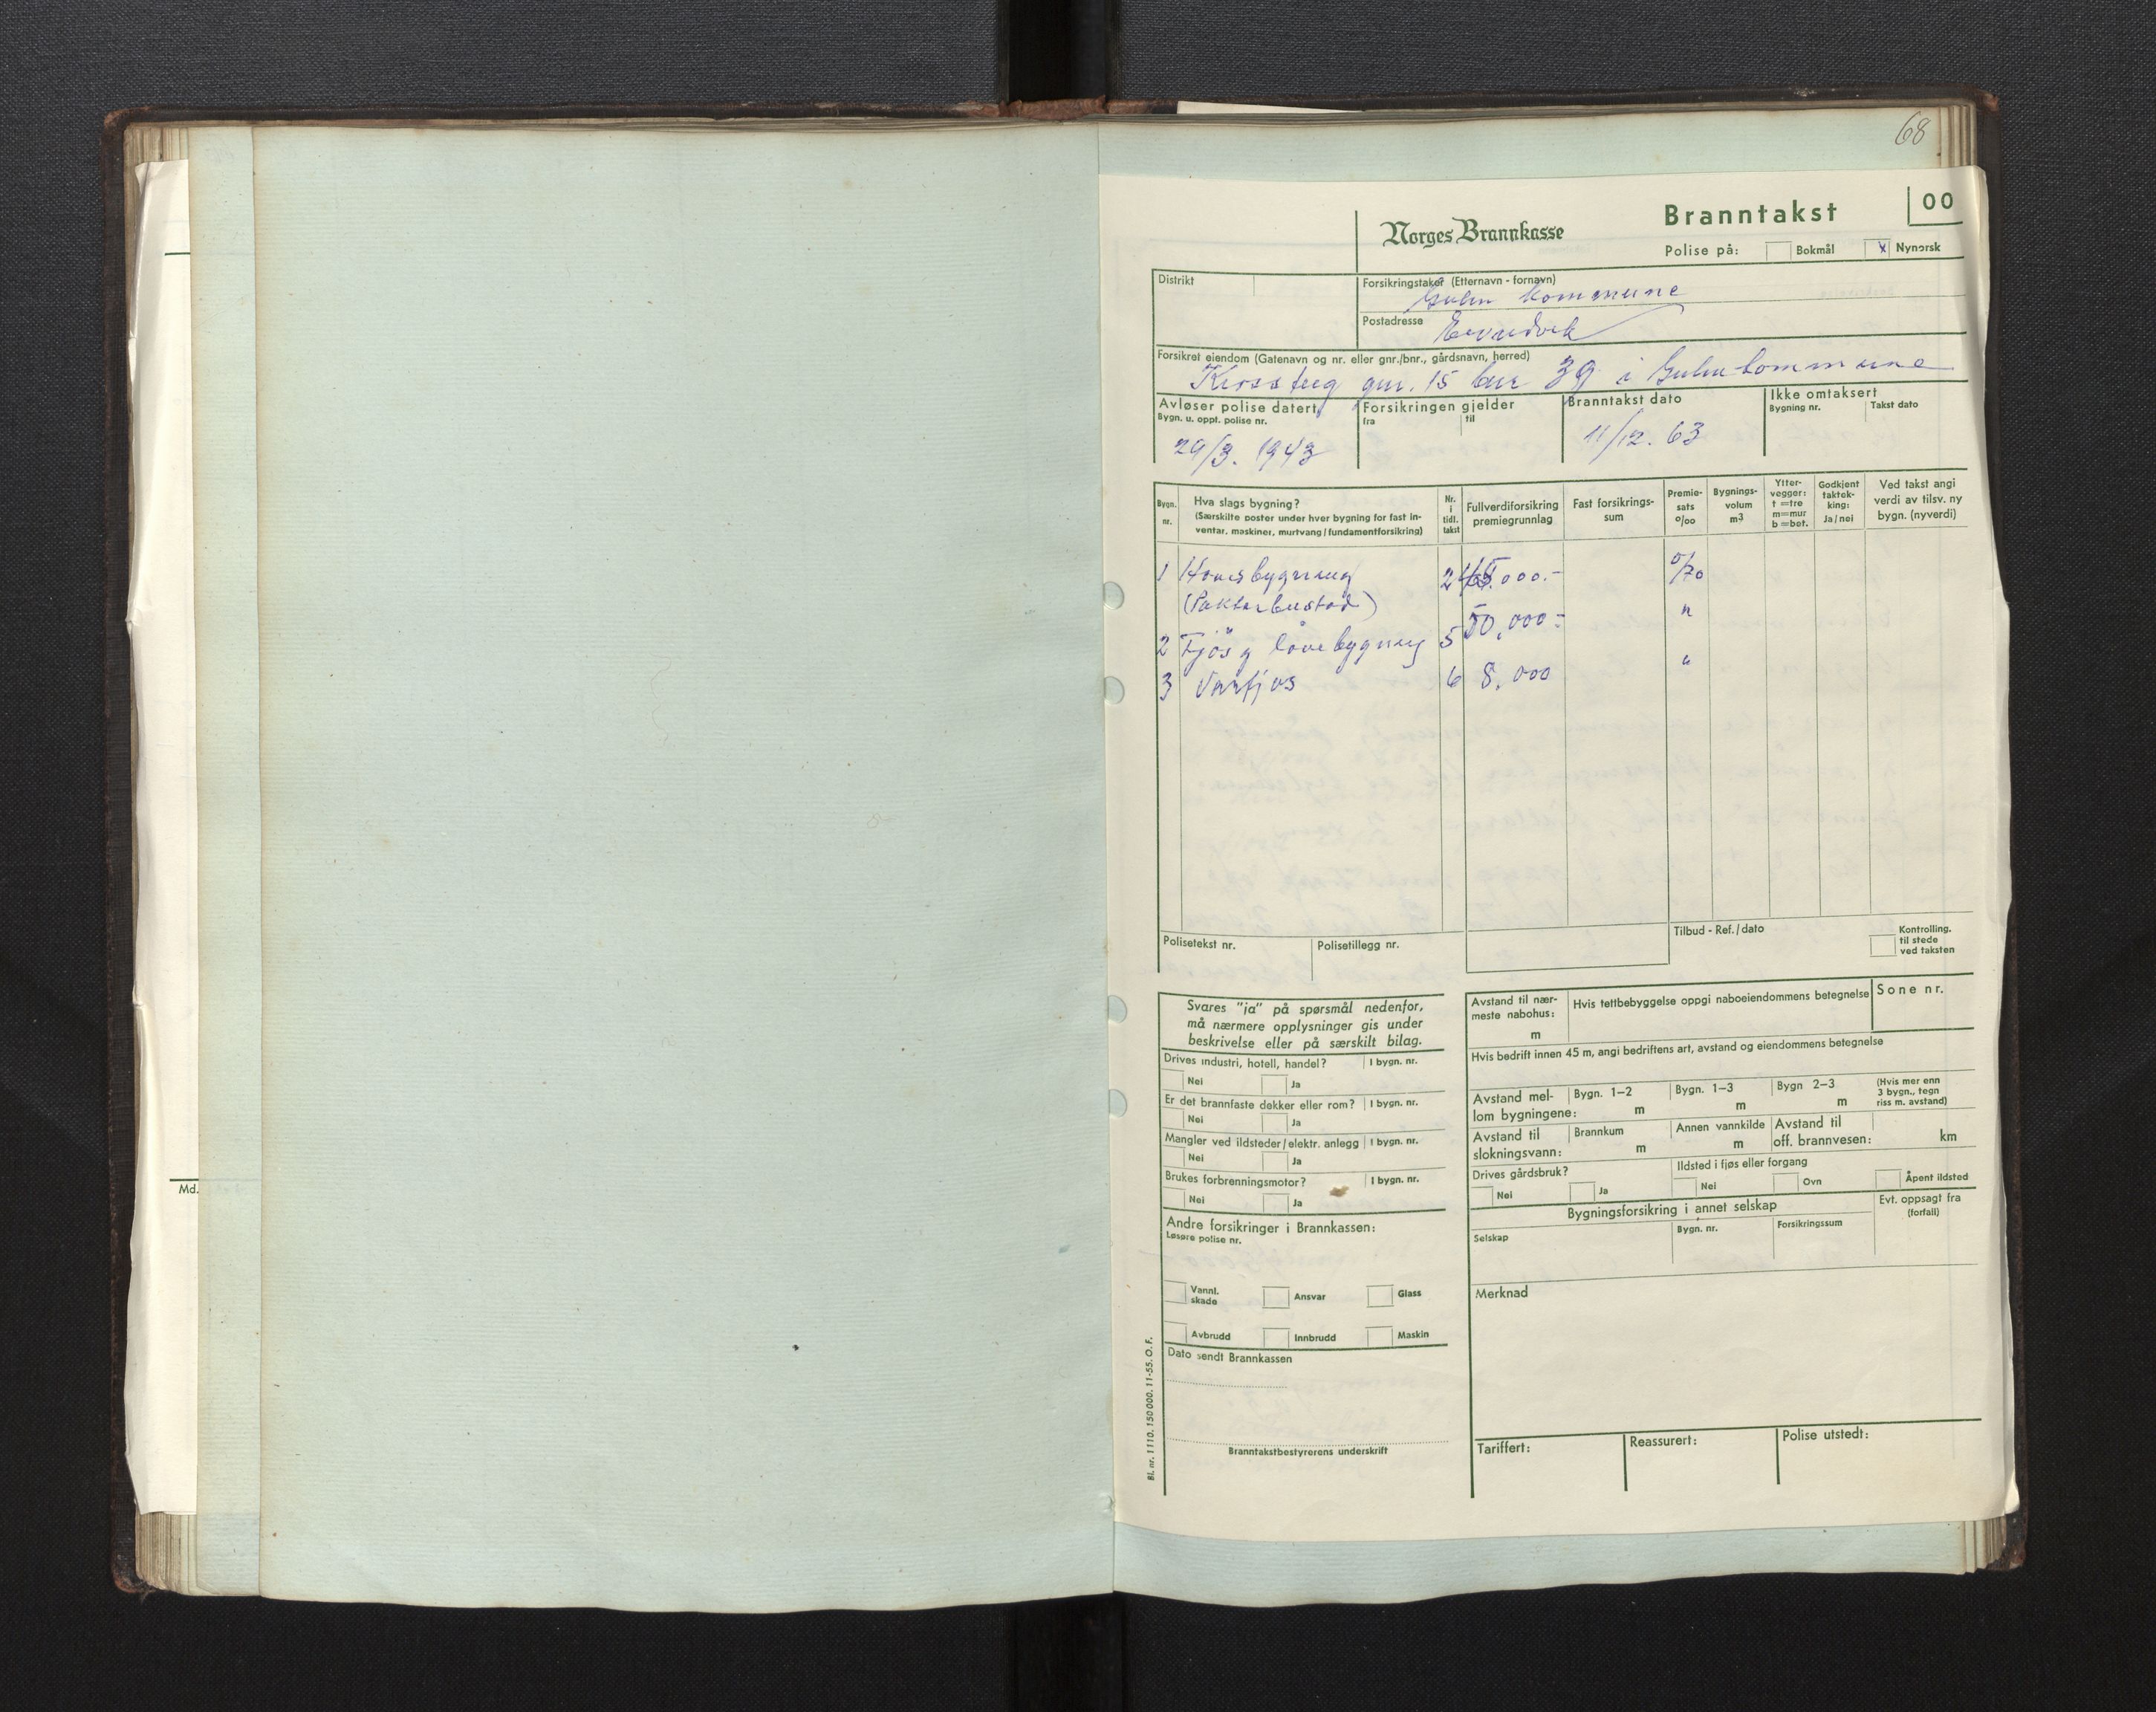 68
Norges Brannkasse
Branntakst
00
Polise på:
Bokmål
x Nynorsk
Distrikt
Forsikringstaker (Etternavn - fornavn)
Gulen kommune
Postadresse
Eivindvik
Forsikret eiendom (Gatenavn og nr. eller gnr./bnr., gårdsnavn, herred)
gnr. 15 bnr 39 i Gulen kommune
Avløser polise datert
Bygn. u. oppt. polise nr.
29/3. 1943
Forsikringen gjelder
fra
til
Branntakst dato
11/12. 63
Ikke omtaksert
Bygning nr.
Takst dato
Bygn. nr.
Hva slags bygning?
(Særskilte poster under hver bygning for fast in-
ventar, maskiner, murtvang/fundamentforsikring)
Nr. i tidl. takst
Fullverdiforsikring
premiegrunnlag
Fast forsikrings-
sum
Premie-
sats
o/oo
Bygnings-
volum
m3
Ytter-
vegger:
t =tre
m=mur
b =bet.
Godkjent
taktek-
king:
Ja/nei
Ved takst angi
verdi av tilsv. ny
bygn. (nyverdi)
1 Hovedbygning 2 000.-
2 Fjös g lovebygning 5 50,000.- "
3 6 8.000 "
Polisetekst nr.
Polisetillegg nr.
Tilbud - Ref./dato
Kontrolling.
til stede
ved taksten
Svares "ja" på spørsmål nedenfor,
må nærmere opplysninger gis under
beskrivelse eller på særskilt bilag.
Drives industri, hotell, handel?
I bygn. nr.
Nei
Ja
Er det brannfaste dekker eller rom?
I bygn. nr.
Nei
Ja
Mangler ved ildsteder/elektr. anlegg
I bygn. nr.
Nei
Ja
Brukes forbrenningsmotor?
I bygn. nr.
Nei
Ja
Andre forsikringer i Brannkassen:
Løsøre polise nr.
Vannl.
skade
Ansvar
Glass
Avbrudd
Innbrudd
Maskin
Dato sendt Brannkassen
Branntakstbestyrerens underskrift
Bl. nr. 1110. 150 000. 11-55. O. F.
Avstand til nær-
meste nabohus:
m
Hvis tettbebyggelse oppgi naboeiendommens betegnelse
Sone nr.
Hvis bedrift innen 45 m, angi bedriftens art, avstand og eiendommens betegnelse
Avstand mel-
lom bygningene:
Bygn. 1–2
m
Bygn. 1–3
m
Bygn 2–3
m
(Hvis mer enn
3 bygn., tegn
riss m. avstand)
Avstand til
slokningsvann:
Brannkum
m
Annen vannkilde
m
Avstand til
off. brannvesen:
km
Drives gårdsbruk?
Nei
Ja
Ildsted i fjøs eller forgang
Nei
Ovn
Åpent ildsted
Bygningsforsikring i annet selskap
Selskap
Bygn. nr.
Forsikringssum
Evt. oppsagt fra
(forfall)
Merknad
Tariffert:
Reassurert:
Polise utstedt:
Md.